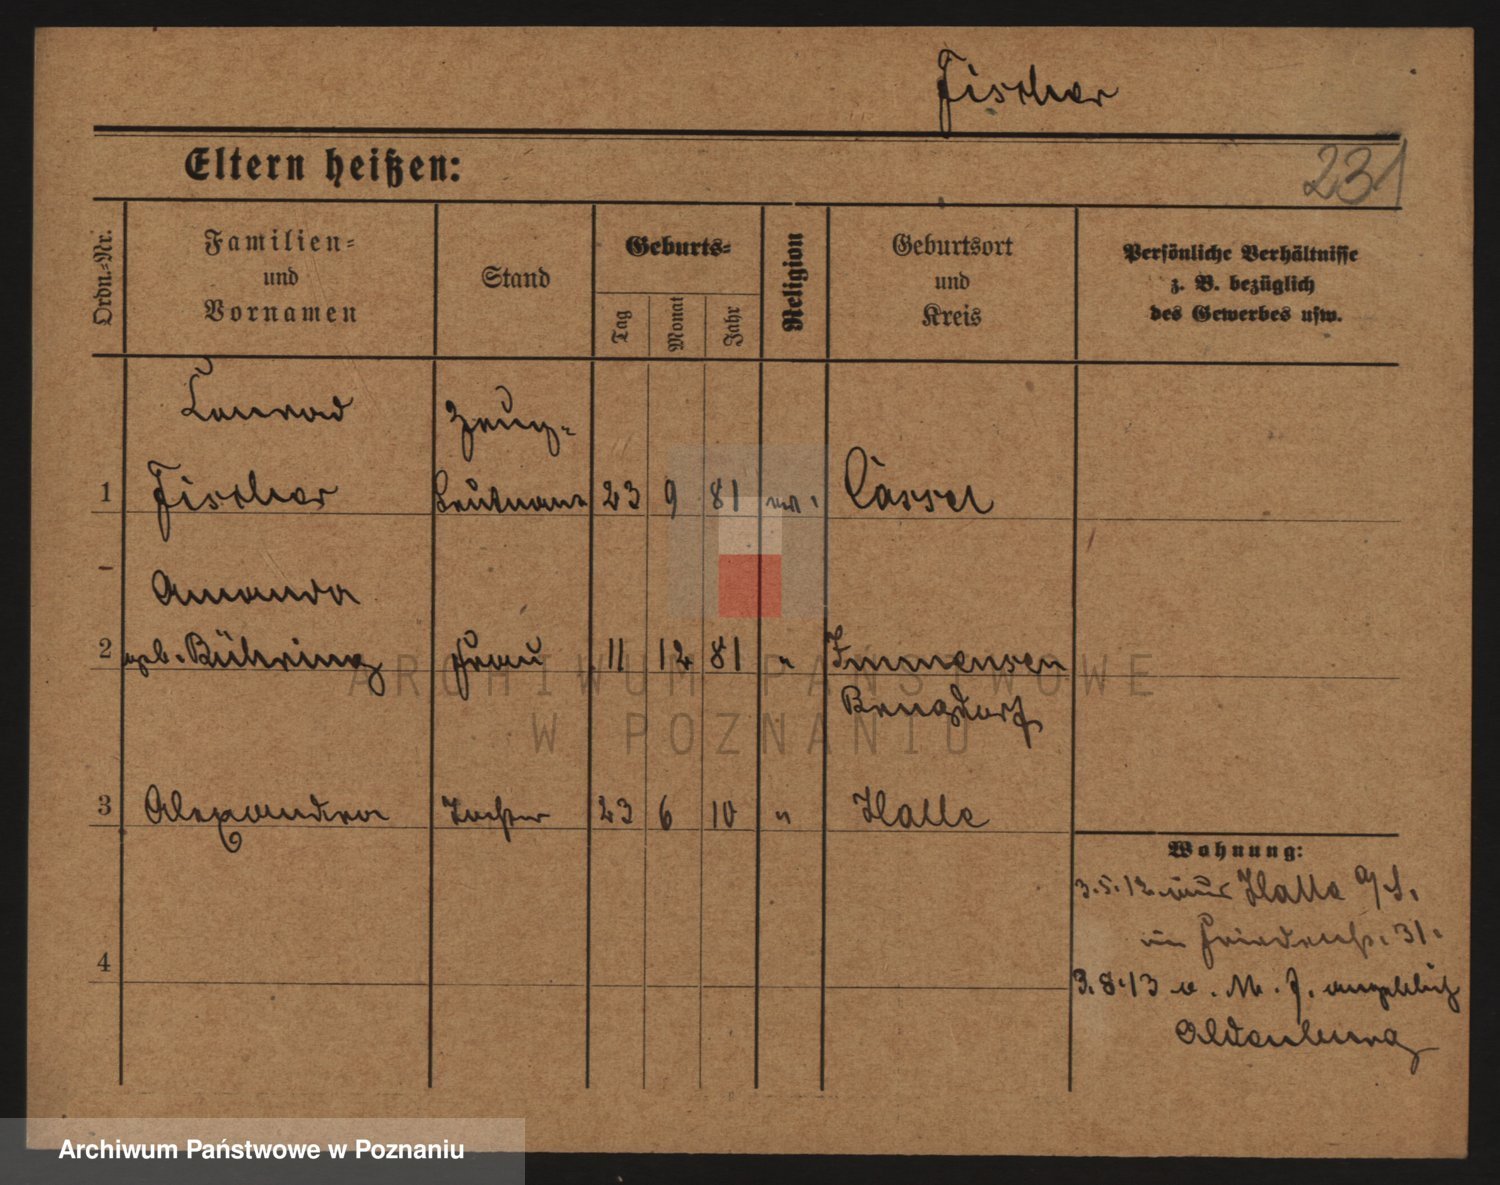 Fischer
Eltern heißen:
231
Ordn.=Nr.
Familien=
und
Vornamen
Stand
Geburts=
Tag
Monat
Jahr
Religion
Geburtsort
und
Kreis
Persönliche Verhältnisse
z. B. bezüglich
des Gewerbes usw.
Conrad
Zeug-
1 Fischer Leutnant 23 9 81 Cassel
Amanda
2 geb. Bühring Frau 11 12 81 " Immensen
3 Alexandra Tochter 23 6 10 " Halle
Wohnung:
3.5.12 Halle a/S.
31.
4
3.8.13 angeblich
Oldenburg
ARCHIWUM PAŃSTWOWE
W POZNANIU
Archiwum Państwowe w Poznaniu